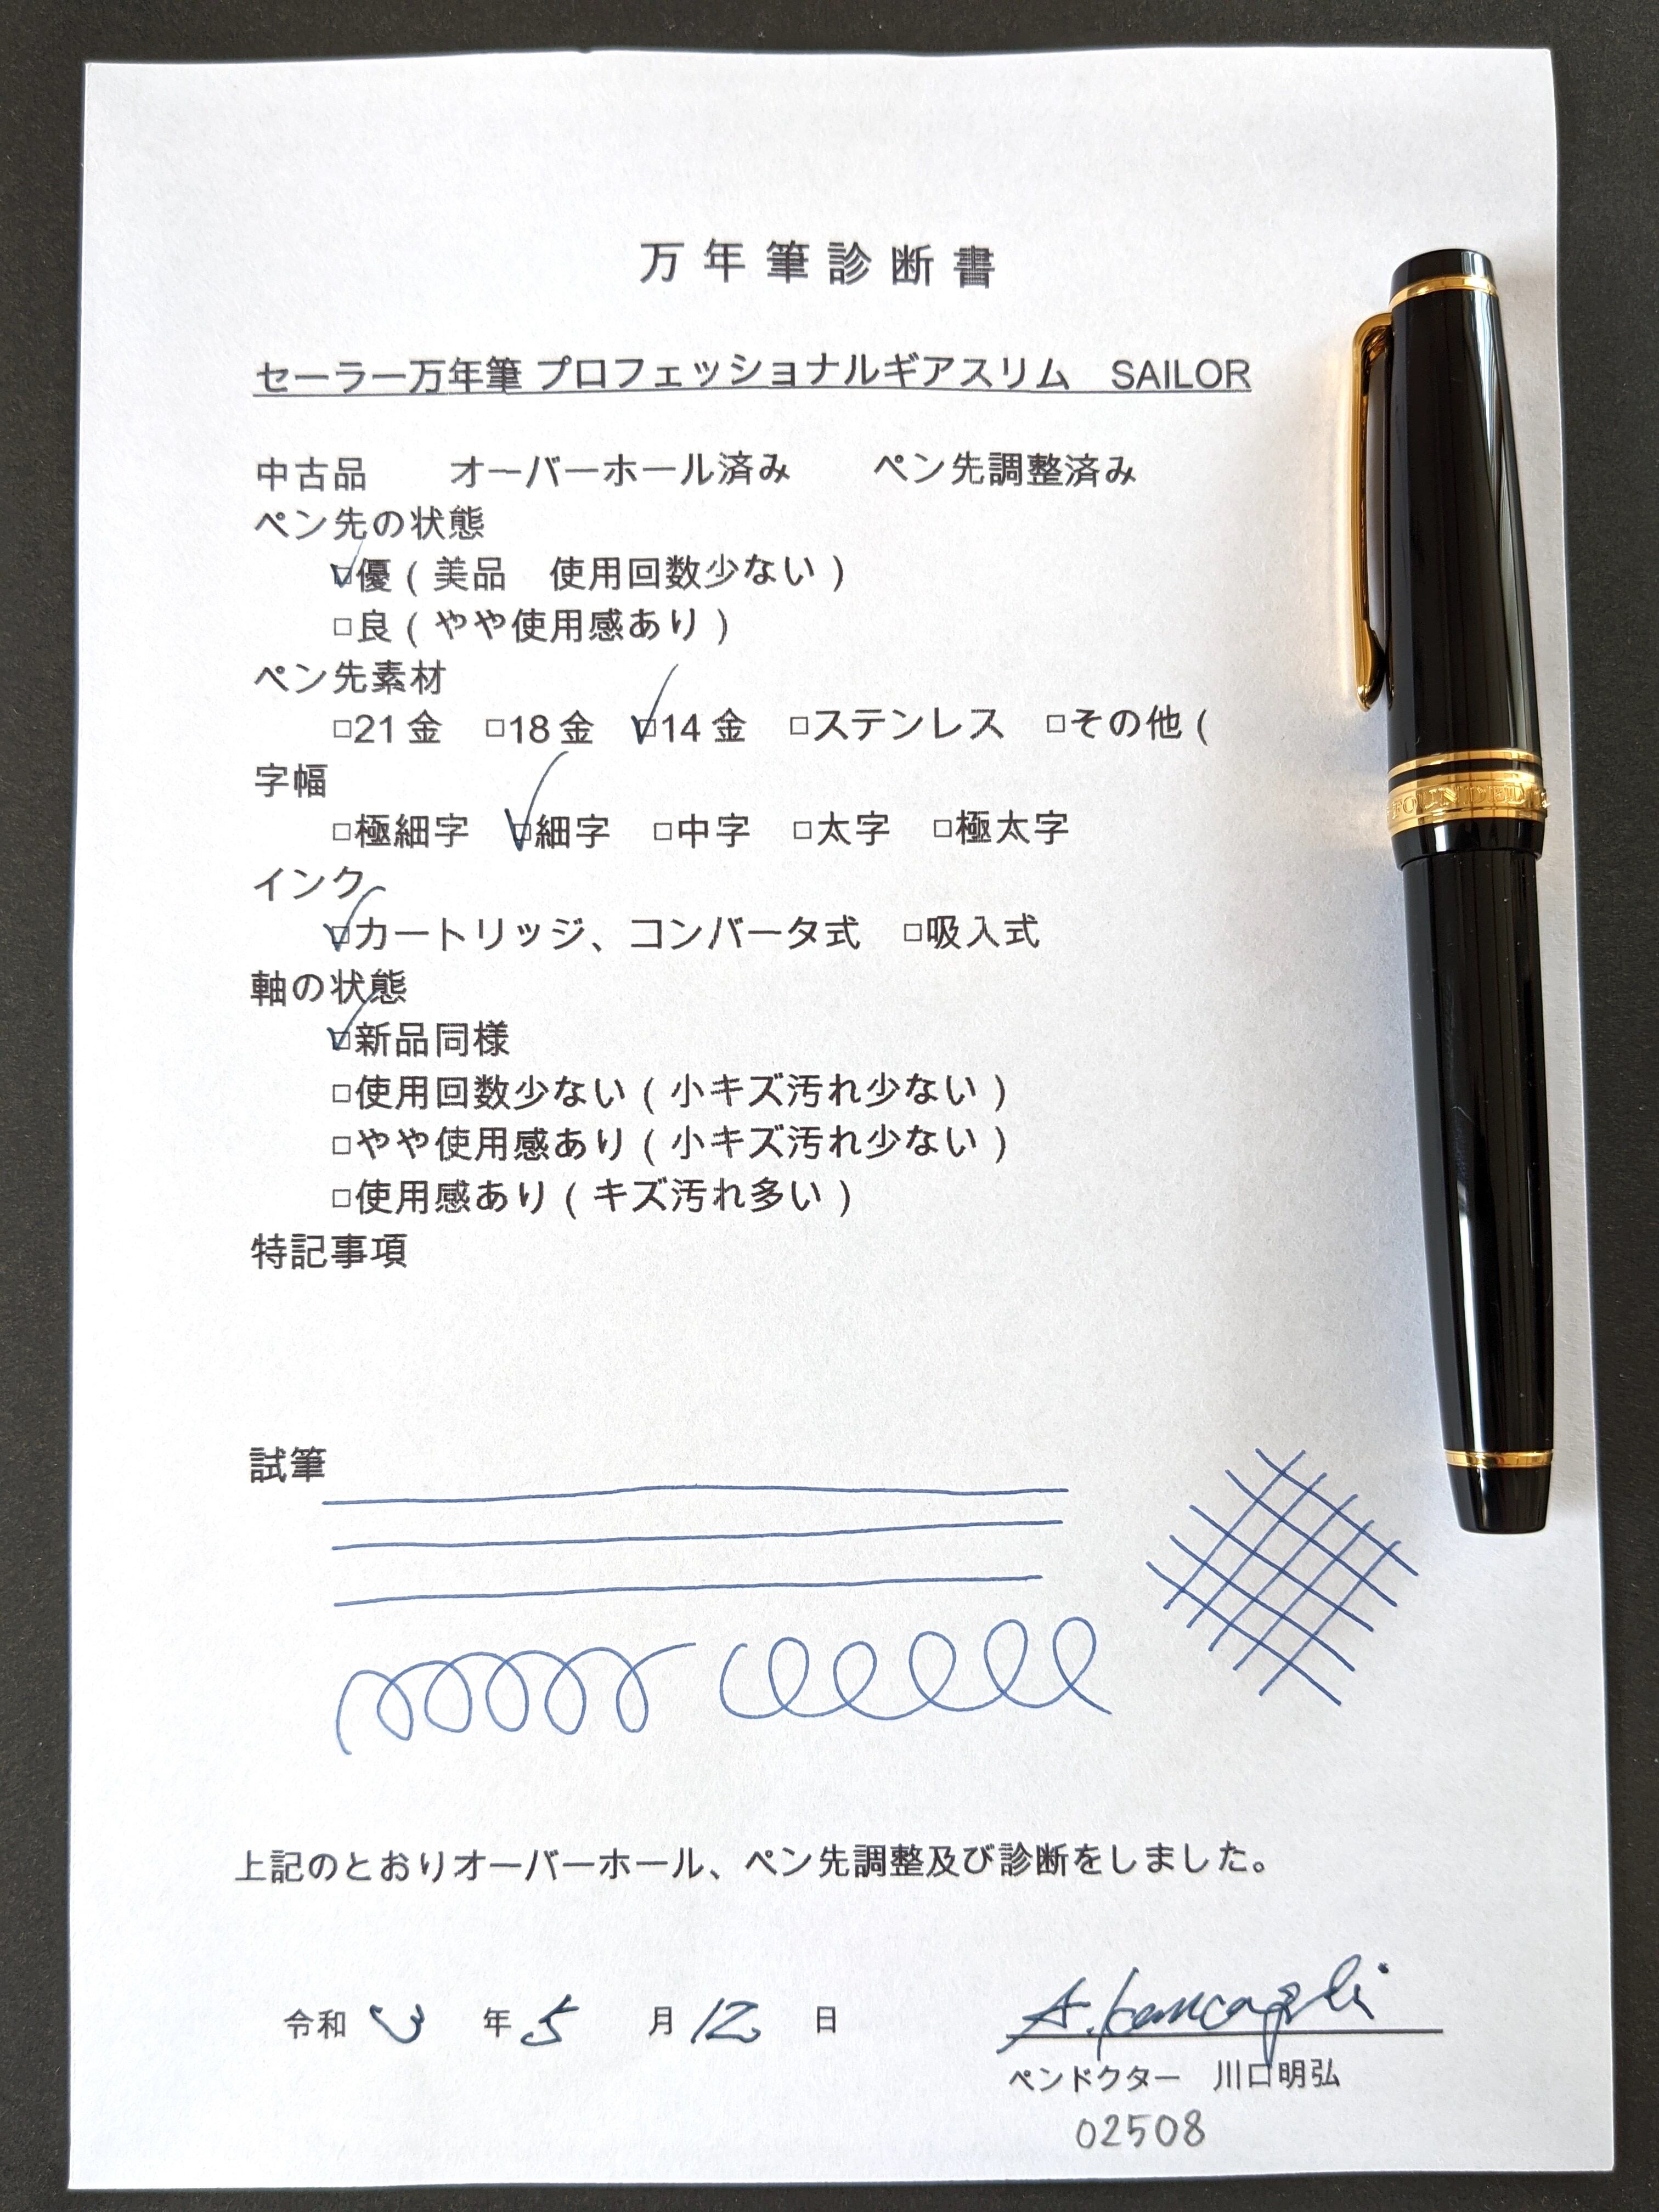 万年筆診断書
セーラー万年筆 プロフェッショナルギアスリム　SAILOR
中古品　　オーバーホール済み　　ペン先調整済み
ペン先の状態
☑優（美品　使用回数少ない）
□良（やや使用感あり）
ペン先素材
□21金　□18金　☑14金　□ステンレス　□その他（
字幅
□極細字　☑細字　□中字　□太字　□極太字
インク
☑カートリッジ、コンバータ式　□吸入式
軸の状態
☑新品同様
□使用回数少ない（小キズ汚れ少ない）
□やや使用感あり（小キズ汚れ少ない）
□使用感あり（キズ汚れ多い）
特記事項
試筆
上記のとおりオーバーホール、ペン先調整及び診断をしました。
令和 3 年 5 月 12 日
ペンドクター　川口明弘
02508
FOUNDED